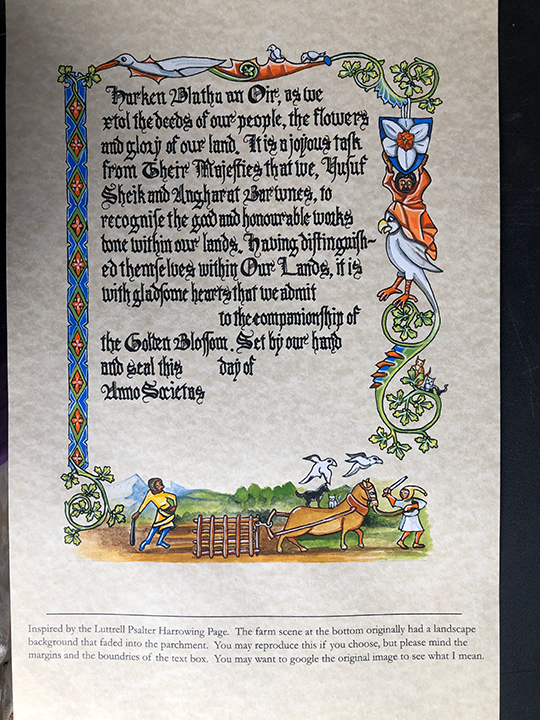 Harken Blatha an Oir, as we
xtol the deeds of our people, the flowers
and glory of our land. It is a joyous task
from Their Majesties that we, Yusuf
Sheik and Angharat Barwnes, to
recognise the god and honourable works
done within our lands. Having distinguish-
ed themselves within Our Lands, it is
with gladsome hearts that we admit
to the companionship of
the Golden Blossom. Set by our hand
and seal this day of
Anno Societas
Inspired by the Luttrell Psalter Harrowing Page. The farm scene at the bottom originally had a landscape
background that faded into the parchment. You may reproduce this if you choose, but please mind the
margins and the boundries of the text box. You may want to google the original image to see what I mean.